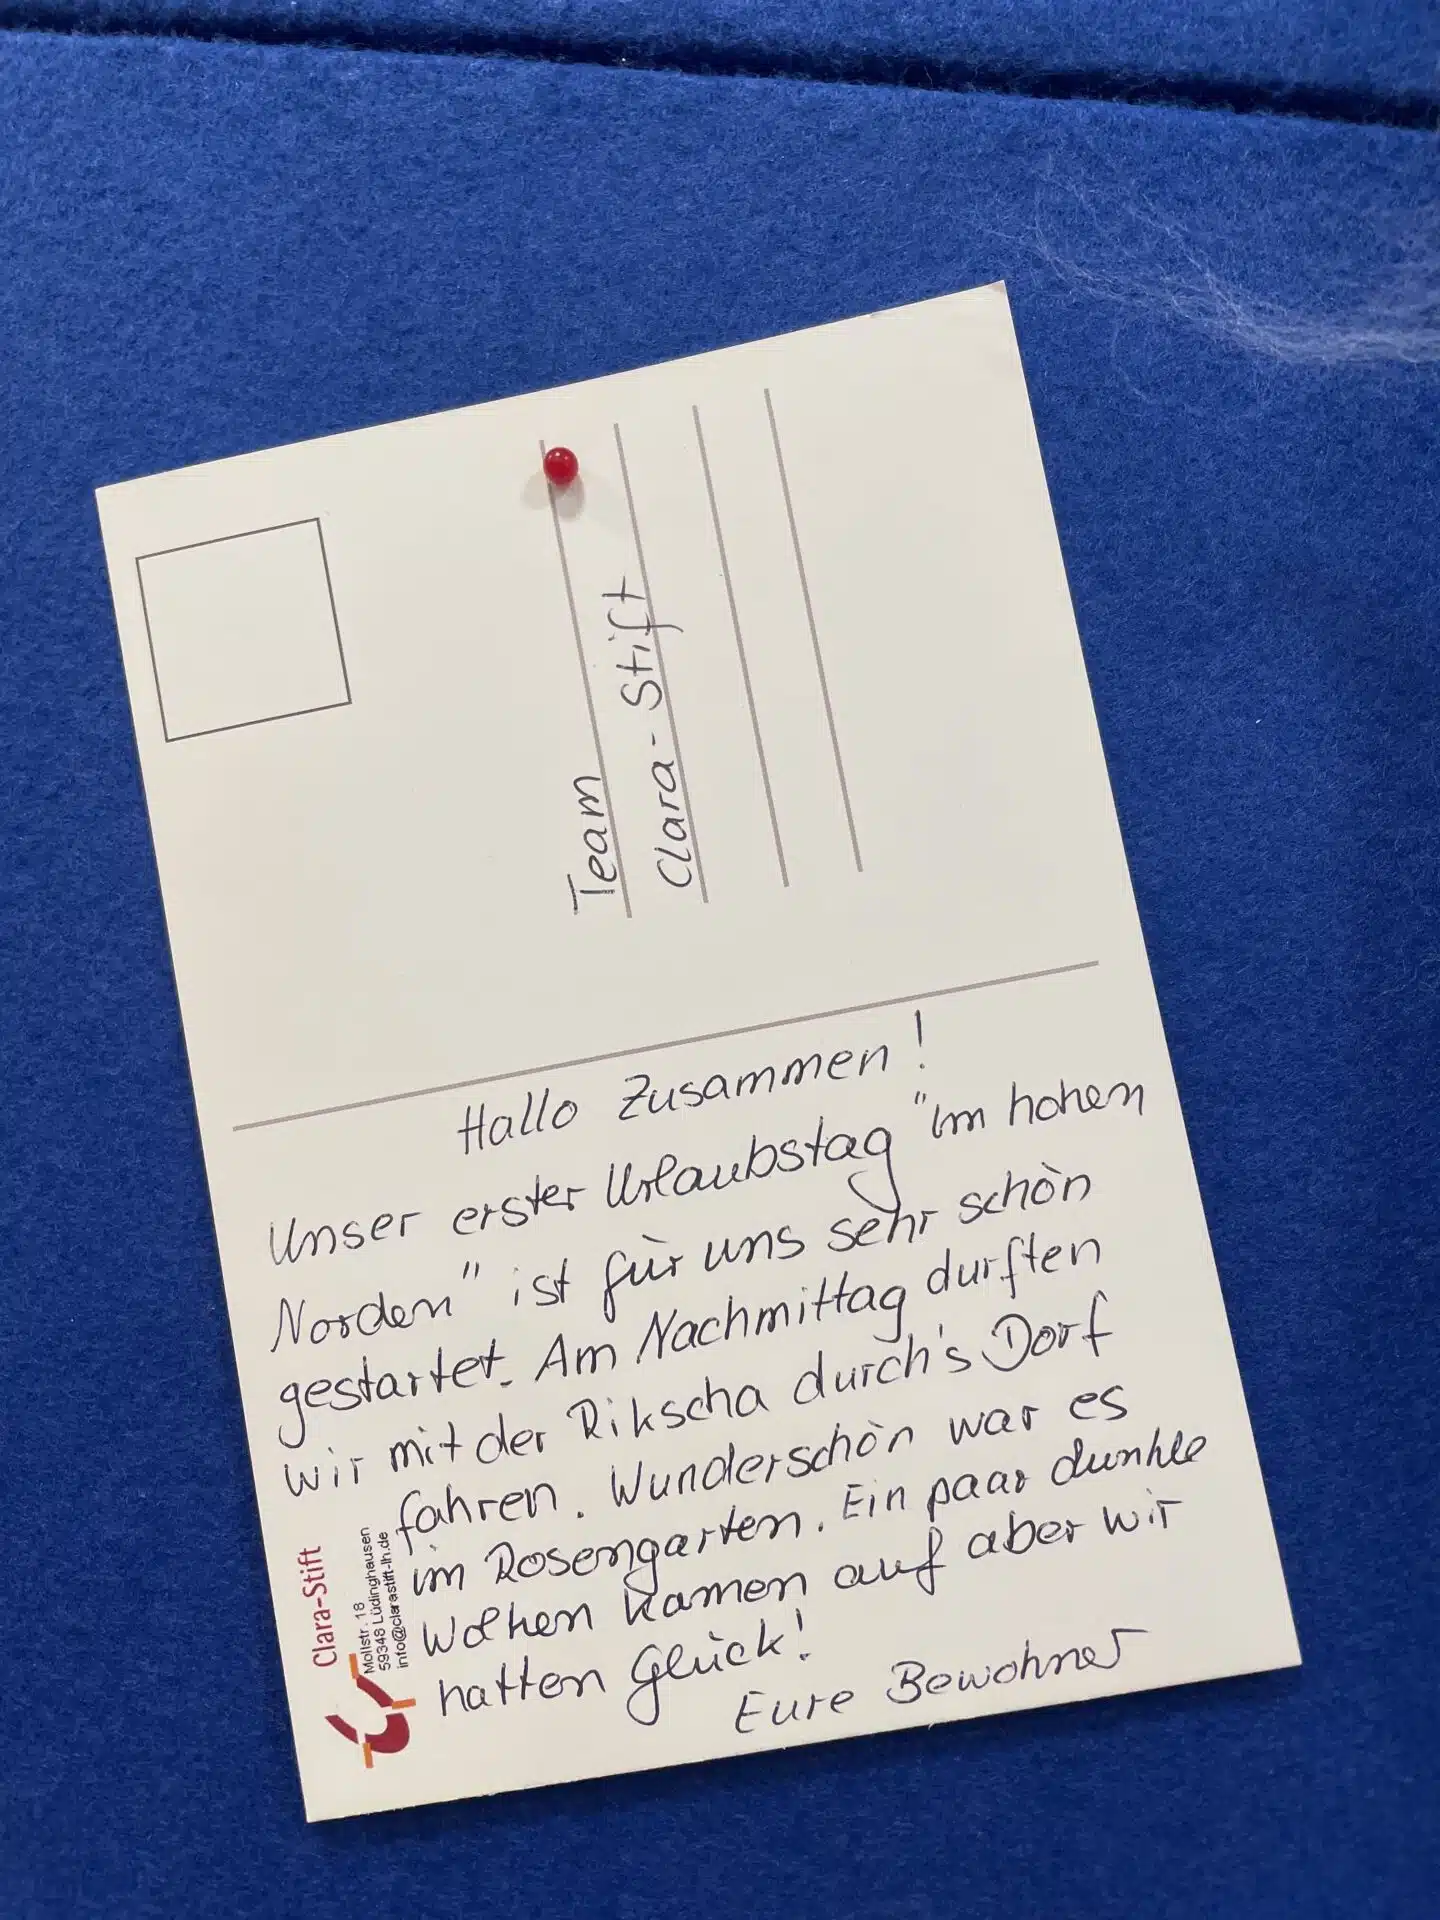 Team
Clara-Stift
Hallo Zusammen!
Unser erster Urlaubstag "im hohen
Norden" ist für uns sehr schön
gestartet. Am Nachmittag durften
wir mit der Rikscha durch's Dorf
fahren. Wunderschön war es
im Rosengarten. Ein paar dunkle
Wolken kamen auf aber wir
hatten Glück!
Eure Bewohner
Clara-Stift
Mollstr. 18
59348 Lüdinghausen
info@clarastift-lh.de